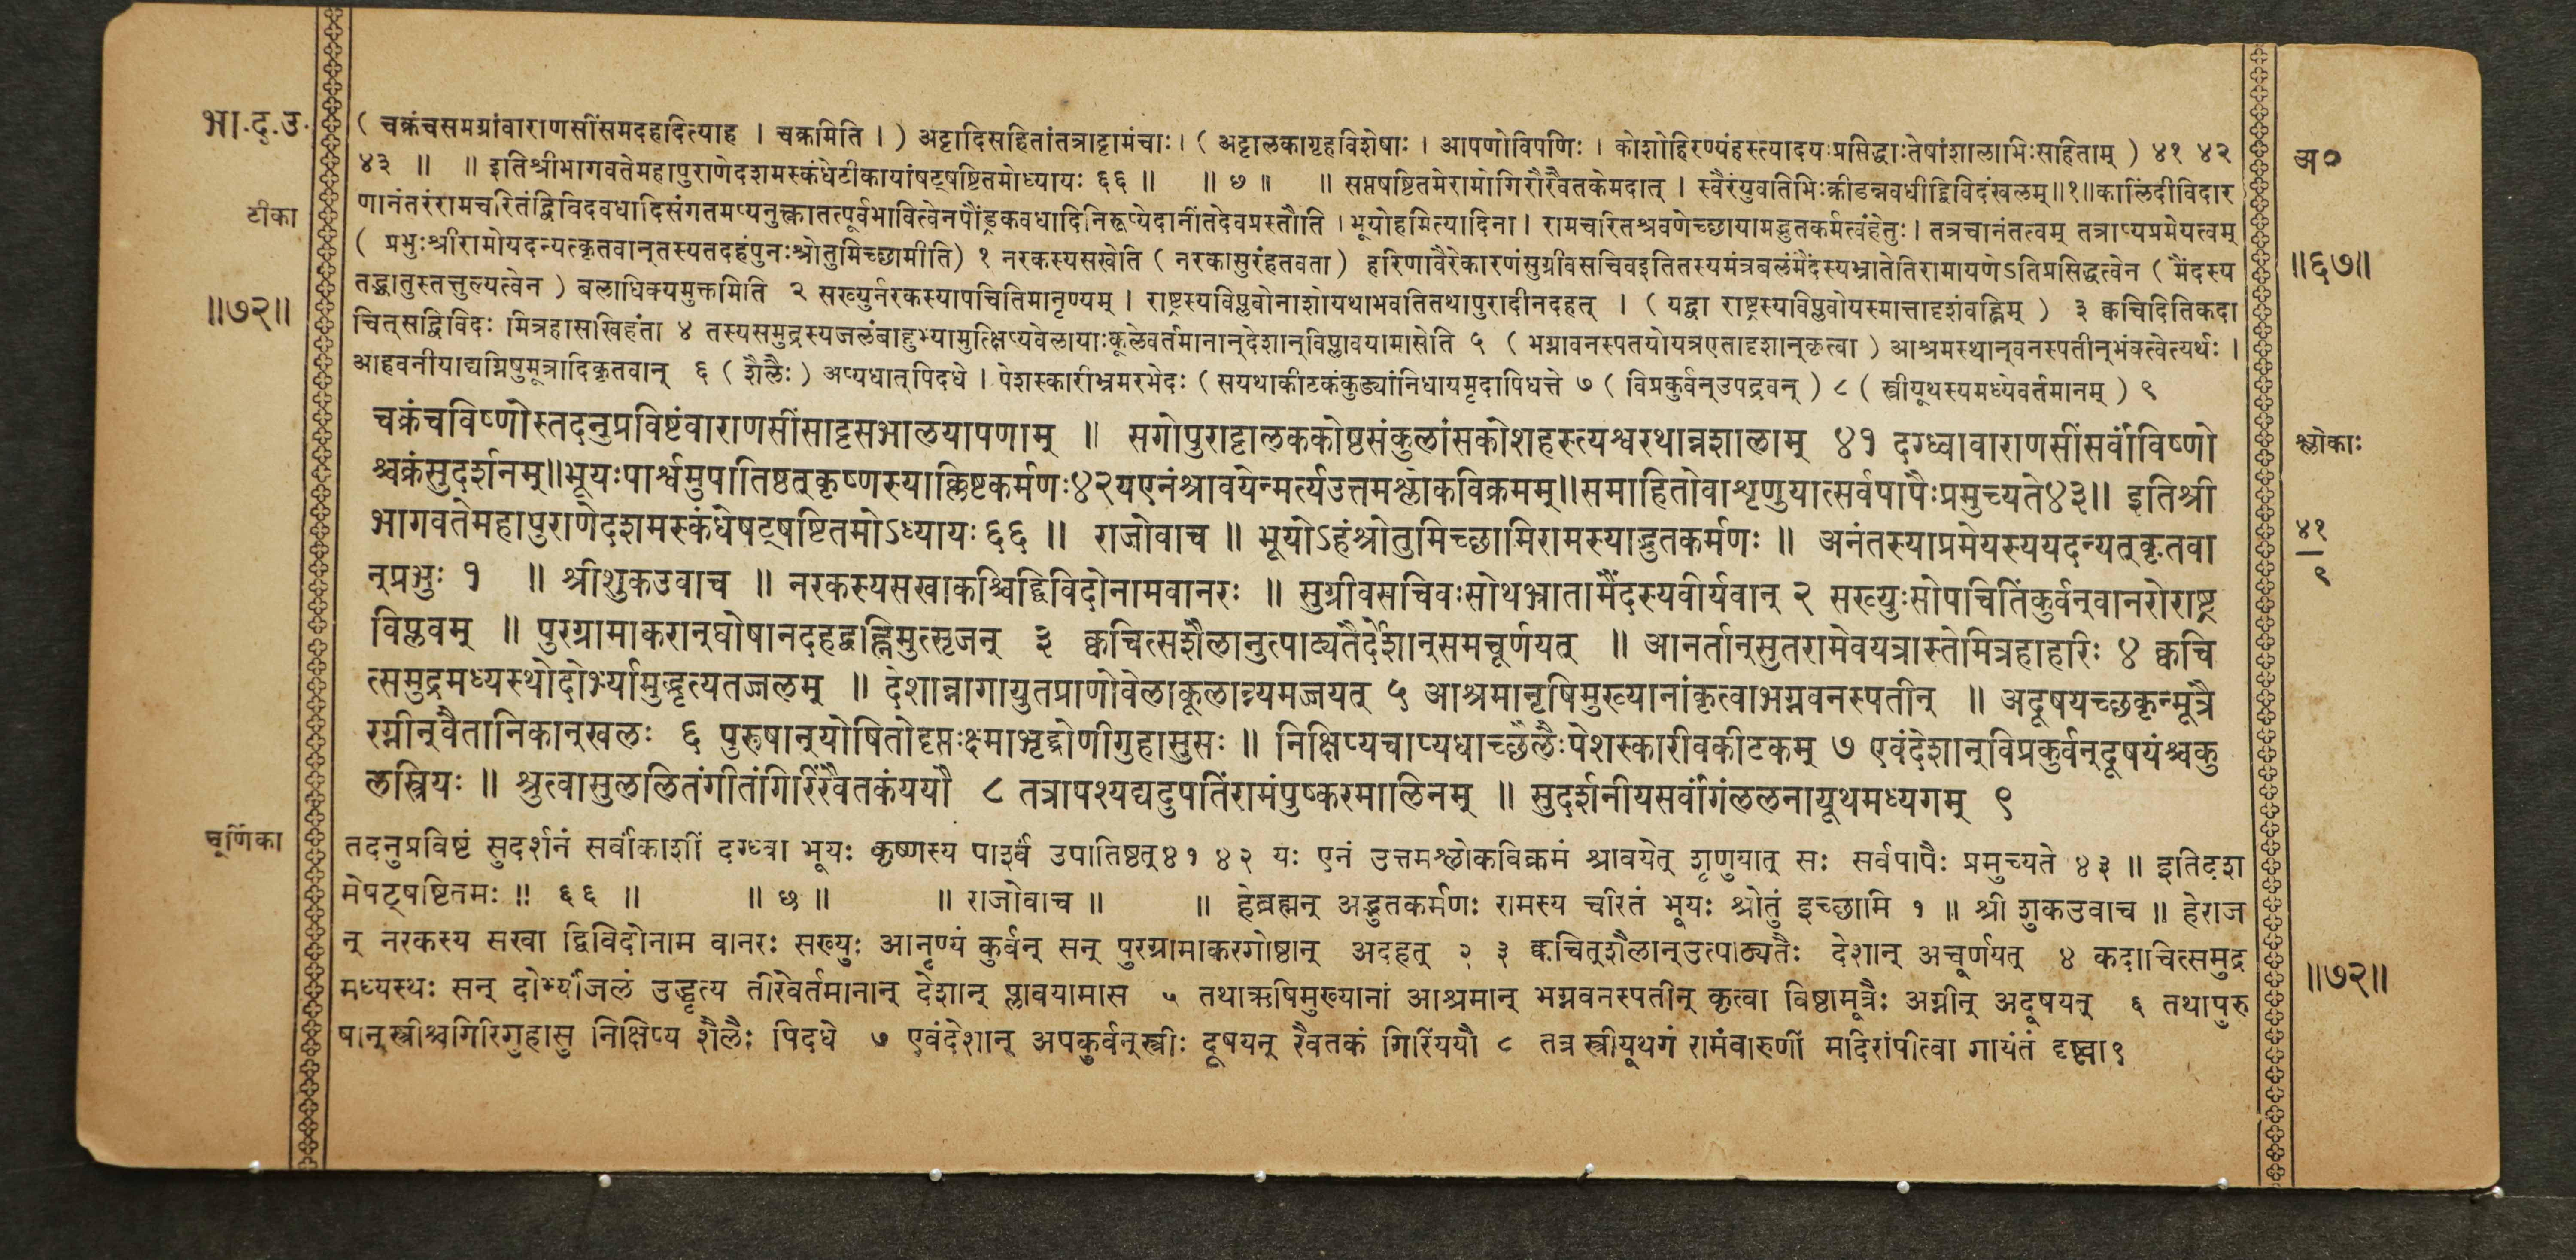 भा.द.उ.
(चक्रंचसमग्रांवाराणसींसमदहदित्याह । चक्रमिति । ) अट्टादिसहितांतत्राट्टामंचाः। ( अट्टालकागृहविशेषाः । आपणोविपणिः । कोशोहिरण्यंहस्त्यादयःप्रसिद्धाःतेषांशालाभिःसहिताम् ) ४१ ४२
अ०
४३ ॥ ॥ इतिश्रीभागवतेमहापुराणेदशमस्कंधेटीकायांषट्षष्टितमोध्यायः ६६ ॥ ॥ छ ॥ ॥ सप्तषष्टितमेरामोगिरौरैवतकेमदात् । स्वैरंयुवतिभिःक्रीडन्नवधीद्विविदंखलम्॥१॥कालिंदीविदार
टीका
णानंतरंरामचरितंद्विविदवधादिसंगतमप्यनुक्त्वातत्पूर्वभावित्वेनपौंड्रकवधादिनिरूप्येदानींतदेवप्रस्तौति । भूयोहमित्यादिना । रामचरितश्रवणेच्छायामद्भुतकर्मत्वंहेतुः। तत्रचानंतत्वम् तत्राप्यप्रमेयत्वम्
( प्रभुःश्रीरामोयदन्यत्कृतवान्तस्यतदहंपुनःश्रोतुमिच्छामीति) १ नरकस्यसखेति ( नरकासुरंहतवता ) हरिणावैरेकारणंसुग्रीवसचिवइतितस्यमंत्रबलंमैंदस्यभ्रातेतिरामायणेऽतिप्रसिद्धत्वेन ( मैंदस्य
॥६७॥
॥७२॥
तद्भ्रातुस्तत्तुल्यत्वेन ) बलाधिक्यमुक्तमिति २ सख्युर्नरकस्यापचितिमानृण्यम् । राष्ट्रस्यविप्लवोनाशोयथाभवतितथापुरादीनदहत् । ( यद्वा राष्ट्रस्यविप्लवोयस्मात्तादृशंवह्निम् ) ३ क्वचिदितिकदा
चित्सद्विविदः मित्रहासखिहंता ४ तस्यसमुद्रस्यजलंबाहुभ्यामुत्क्षिप्यवेलायाःकूलेवर्तमानान्देशान्विप्लावयामासेति ५ ( भग्नावनस्पतयोयत्रएतादृशान्कृत्वा ) आश्रमस्थान्वनस्पतीन्भंक्त्वेत्यर्थः ।
आहवनीयाद्यग्निषुमूत्रादिकृतवान् ६ ( शैलैः ) अप्यधात्पिदधे । पेशस्कारीभ्रमरभेदः ( सयथाकीटकंकुड्यांनिधायमृदापिधत्ते ७ ( विप्रकुर्वन्उपद्रवन् ) ८ ( स्त्रीयूथस्यमध्येवर्तमानम् ) ९
चक्रंचविष्णोस्तदनुप्रविष्टंवाराणसींसाट्टसभालयापणाम् ॥ सगोपुराट्टालककोष्ठसंकुलांसकोशहस्त्यश्वरथान्नशालाम् ४१ दग्ध्वावाराणसींसर्वांविष्णो
श्लोकाः
श्चक्रंसुदर्शनम्॥भूयःपार्श्वमुपातिष्ठत्कृष्णस्याक्लिष्टकर्मणः४२यएनंश्रावयेन्मर्त्यउत्तमश्लोकविक्रमम्॥समाहितोवाशृणुयात्सर्वपापैःप्रमुच्यते४३॥ इतिश्री
भागवतेमहापुराणेदशमस्कंधेषट्षष्टितमोऽध्यायः ६६ ॥ राजोवाच ॥ भूयोऽहंश्रोतुमिच्छामिरामस्याद्भुतकर्मणः ॥ अनंतस्याप्रमेयस्ययदन्यत्कृतवा
४१
९
न्प्रभुः १ ॥ श्रीशुकउवाच ॥ नरकस्यसखाकश्चिद्द्विविदोनामवानरः ॥ सुग्रीवसचिवःसोथभ्रातामैंदस्यवीर्यवान् २ सख्युःसोपचितिंकुर्वन्वानरोराष्ट्र
विप्लवम् ॥ पुरग्रामाकरान्घोषानदहद्वह्निमुत्सृजन् ३ क्वचित्सशैलानुत्पाट्यतैर्देशान्समचूर्णयत् ॥ आनर्तान्सुतरामेवयत्रास्तेमित्रहाहरिः ४ क्वचि
त्समुद्रमध्यस्थोदोर्भ्यामुद्धृत्यतज्जलम् ॥ देशान्नागायुतप्राणोवेलाकूलान्न्यमज्जयत् ५ आश्रमानृषिमुख्यानांकृत्वाभग्नवनस्पतीन् ॥ अदूषयच्छकृन्मूत्रै
रग्नीन्वैतानिकान्खलः ६ पुरुषान्योषितोदृप्तःक्ष्माभृद्द्रोणीगुहासुसः ॥ निक्षिप्यचाप्यधाच्छैलैःपेशस्कारीवकीटकम् ७ एवंदेशान्विप्रकुर्वन्दूषयंश्चकु
लस्त्रियः ॥ श्रुत्वासुललितंगीतंगिरिंरैवतकंययौ ८ तत्रापश्यद्यदुपतिंरामंपुष्करमालिनम् ॥ सुदर्शनीयसर्वांगंललनायूथमध्यगम् ९
चूर्णिका
तदनुप्रविष्टं सुदर्शनं सर्वांकाशीं दग्ध्वा भूयः कृष्णस्य पार्श्वं उपातिष्ठत्४१ ४२ यः एनं उत्तमश्लोकविक्रमं श्रावयेत् शृणुयात् सः सर्वपापैः प्रमुच्यते ४३ ॥ इतिदश
मेषट्षष्टितमः ॥ ६६ ॥ ॥ छ ॥ ॥ राजोवाच ॥ ॥ हेब्रह्मन् अद्भुतकर्मणः रामस्य चरितं भूयः श्रोतुं इच्छामि १ ॥ श्री शुकउवाच ॥ हेराज
न् नरकस्य सखा द्विविदोनाम वानरः सख्युः आनृण्यं कुर्वन् सन् पुरग्रामाकरगोष्ठान् अदहत् २ ३ क्वचित्शैलान्उत्पाठ्यतैः देशान् अचूर्णयत् ४ कदाचित्समुद्र
मध्यस्थः सन् दोर्भ्यांजलं उद्धृत्य तीरेवर्तमानान् देशान् प्लावयामास ५ तथाऋषिमुख्यानां आश्रमान् भग्नवनस्पतीन् कृत्वा विष्ठामूत्रैः अग्नीन् अदूषयन् ६ तथापुरु
॥७२॥
षान्स्त्रीश्चगिरिगुहासु निक्षिप्य शैलैः पिदधे ७ एवंदेशान् अपकुर्वन्स्त्रीः दूषयन् रैवतकं गिरिंययौ ८ तत्र स्त्रीयूथगं रामंवारुणीं मदिरांपीत्वा गायंतं दृष्ट्वा९